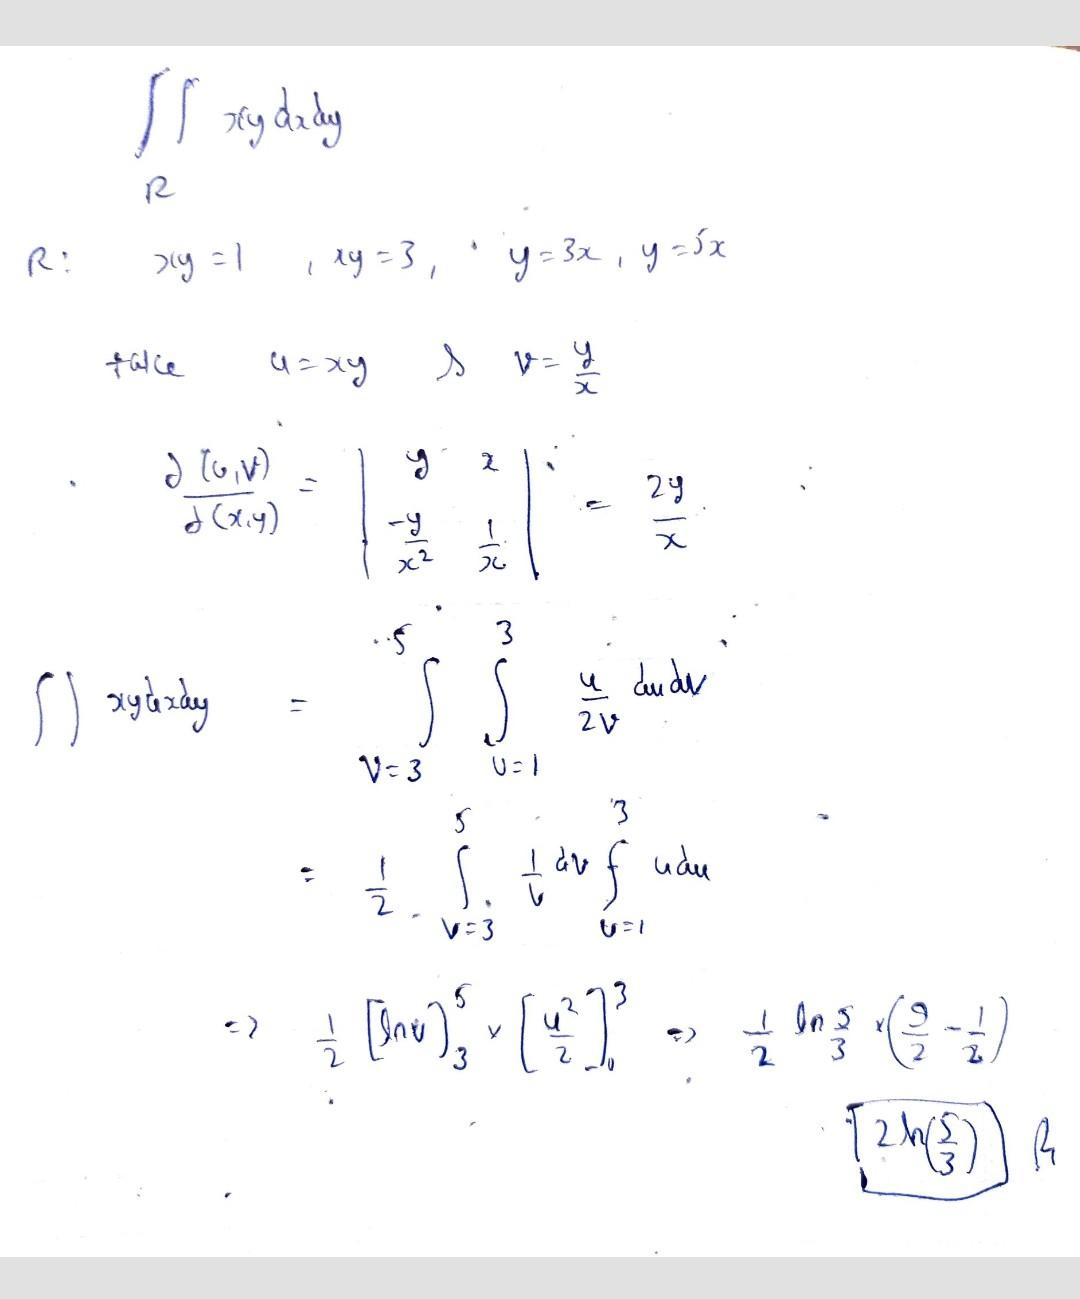 ∫∫ xy dx dy
R
R: xy = 1 , xy = 3, y = 3x , y = 5x
take u = xy & v = y/x
∂(u,v)/∂(x,y) = | y x ; -y/x² 1/x | = 2y/x
∫∫ xy dx dy = ∫_{V=3}^{5} ∫_{U=1}^{3} u/2v du dv
= 1/2 ∫_{V=3}^{5} 1/v dv ∫_{u=1}^{3} u du
=> 1/2 [ln v]_3^5 × [u²/2]^3 => 1/2 ln 5/3 × (9/2 - 1/2)
2 ln(5/3)